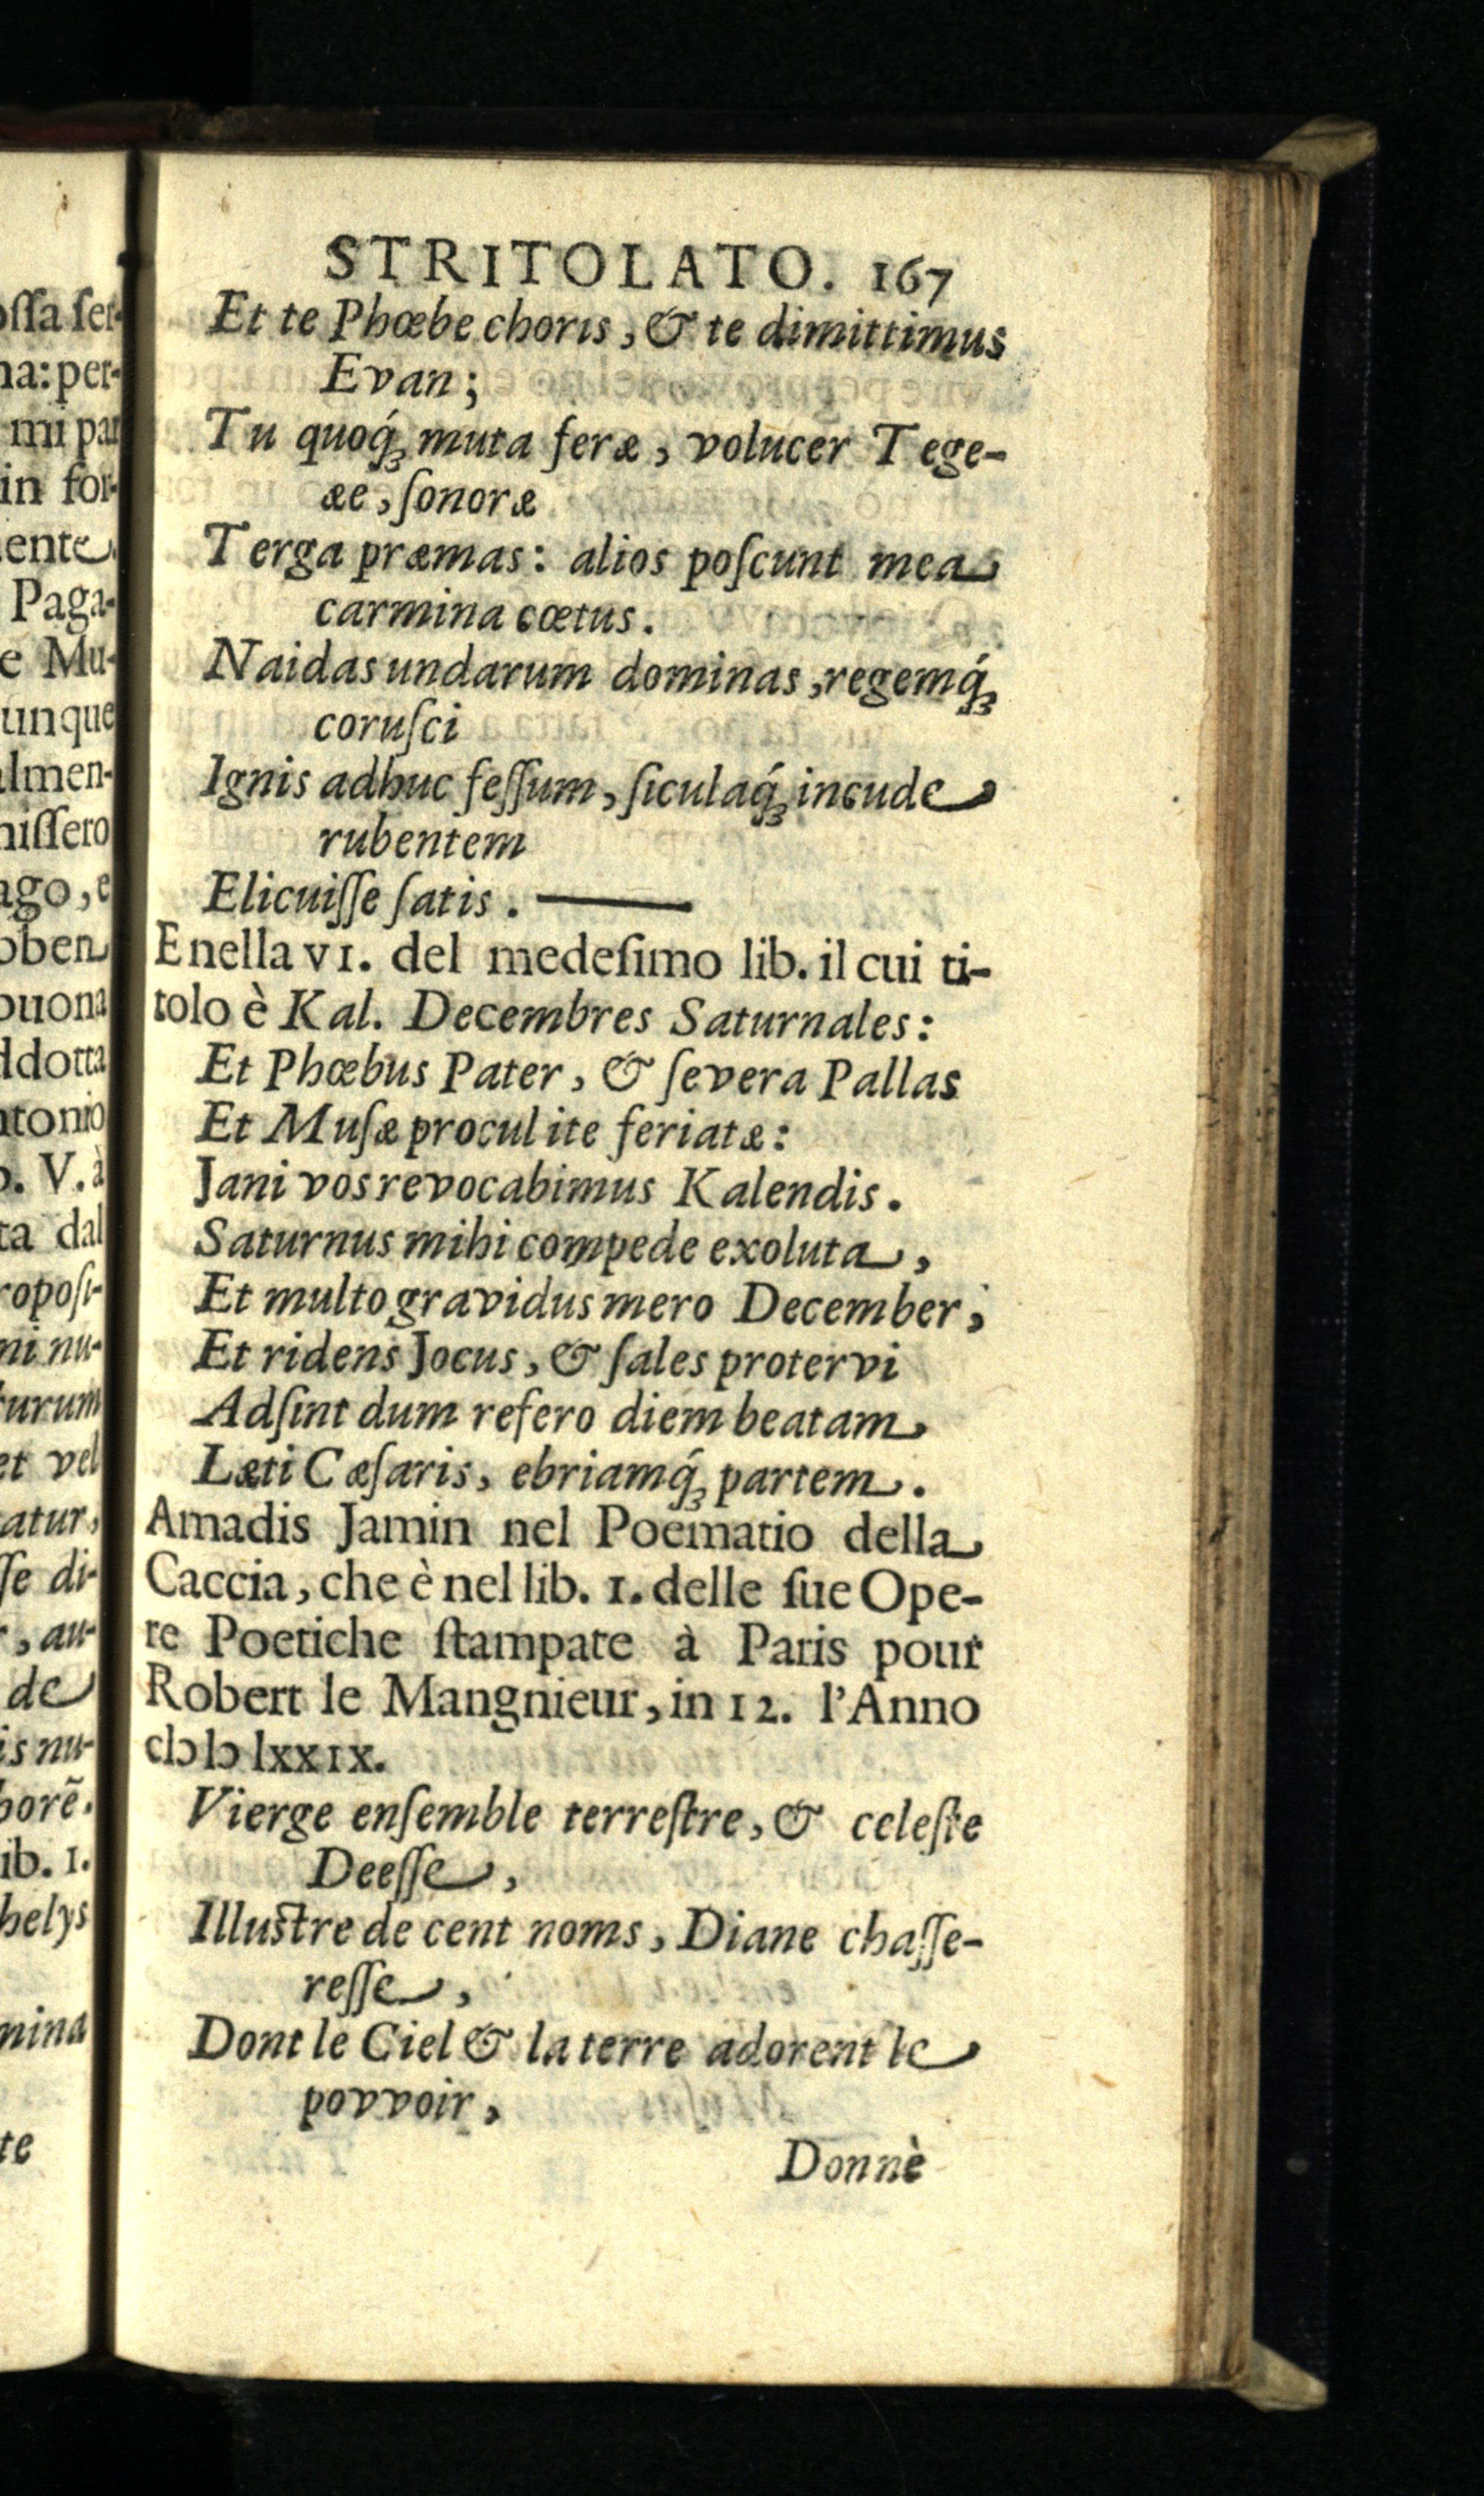 STRITOLATO. 167
Et te Phœbe choris, & te dimittimus
Evan;
Tu quoq́ꝫ muta feræ, volucer Tege-
æe, ſonoræ
Terga præmas: alios poſcunt mea
carmina cœtus.
Naidas undarum dominas, regemq́ꝫ
coruſci
Ignis adhuc feſſum, ſiculaq́ꝫ incude
rubentem
Elicuiſſe ſatis. ———
E nella VI. del medeſimo lib. il cui ti-
tolo è Kal. Decembres Saturnales:
Et Phœbus Pater, & ſevera Pallas
Et Muſæ procul ite feriatæ:
Jani vos revocabimus Kalendis.
Saturnus mihi compede exoluta,
Et multo gravidus mero December;
Et ridens Jocus, & ſales protervi
Adſint dum refero diem beatam
Læti Cæſaris, ebriamq́ꝫ partem.
Amadis Jamin nel Poematio della
Caccia, che è nel lib. 1. delle ſue Ope-
re Poetiche ſtampate à Paris pour
Robert le Mangnieur, in 12. l'Anno
cIↄ Iↄ lxxIx.
Vierge enſemble terreſtre, & celeſte
Deeſſe,
Illuſtre de cent noms, Diane chaſſe-
reſſe,
Dont le Ciel & la terre adorent le
povvoir,
Donnè